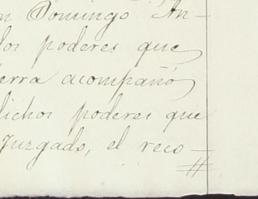 n Domingo An-
los poderes que
erra acompañó
dichos poderes que
Juzgado, el reco-